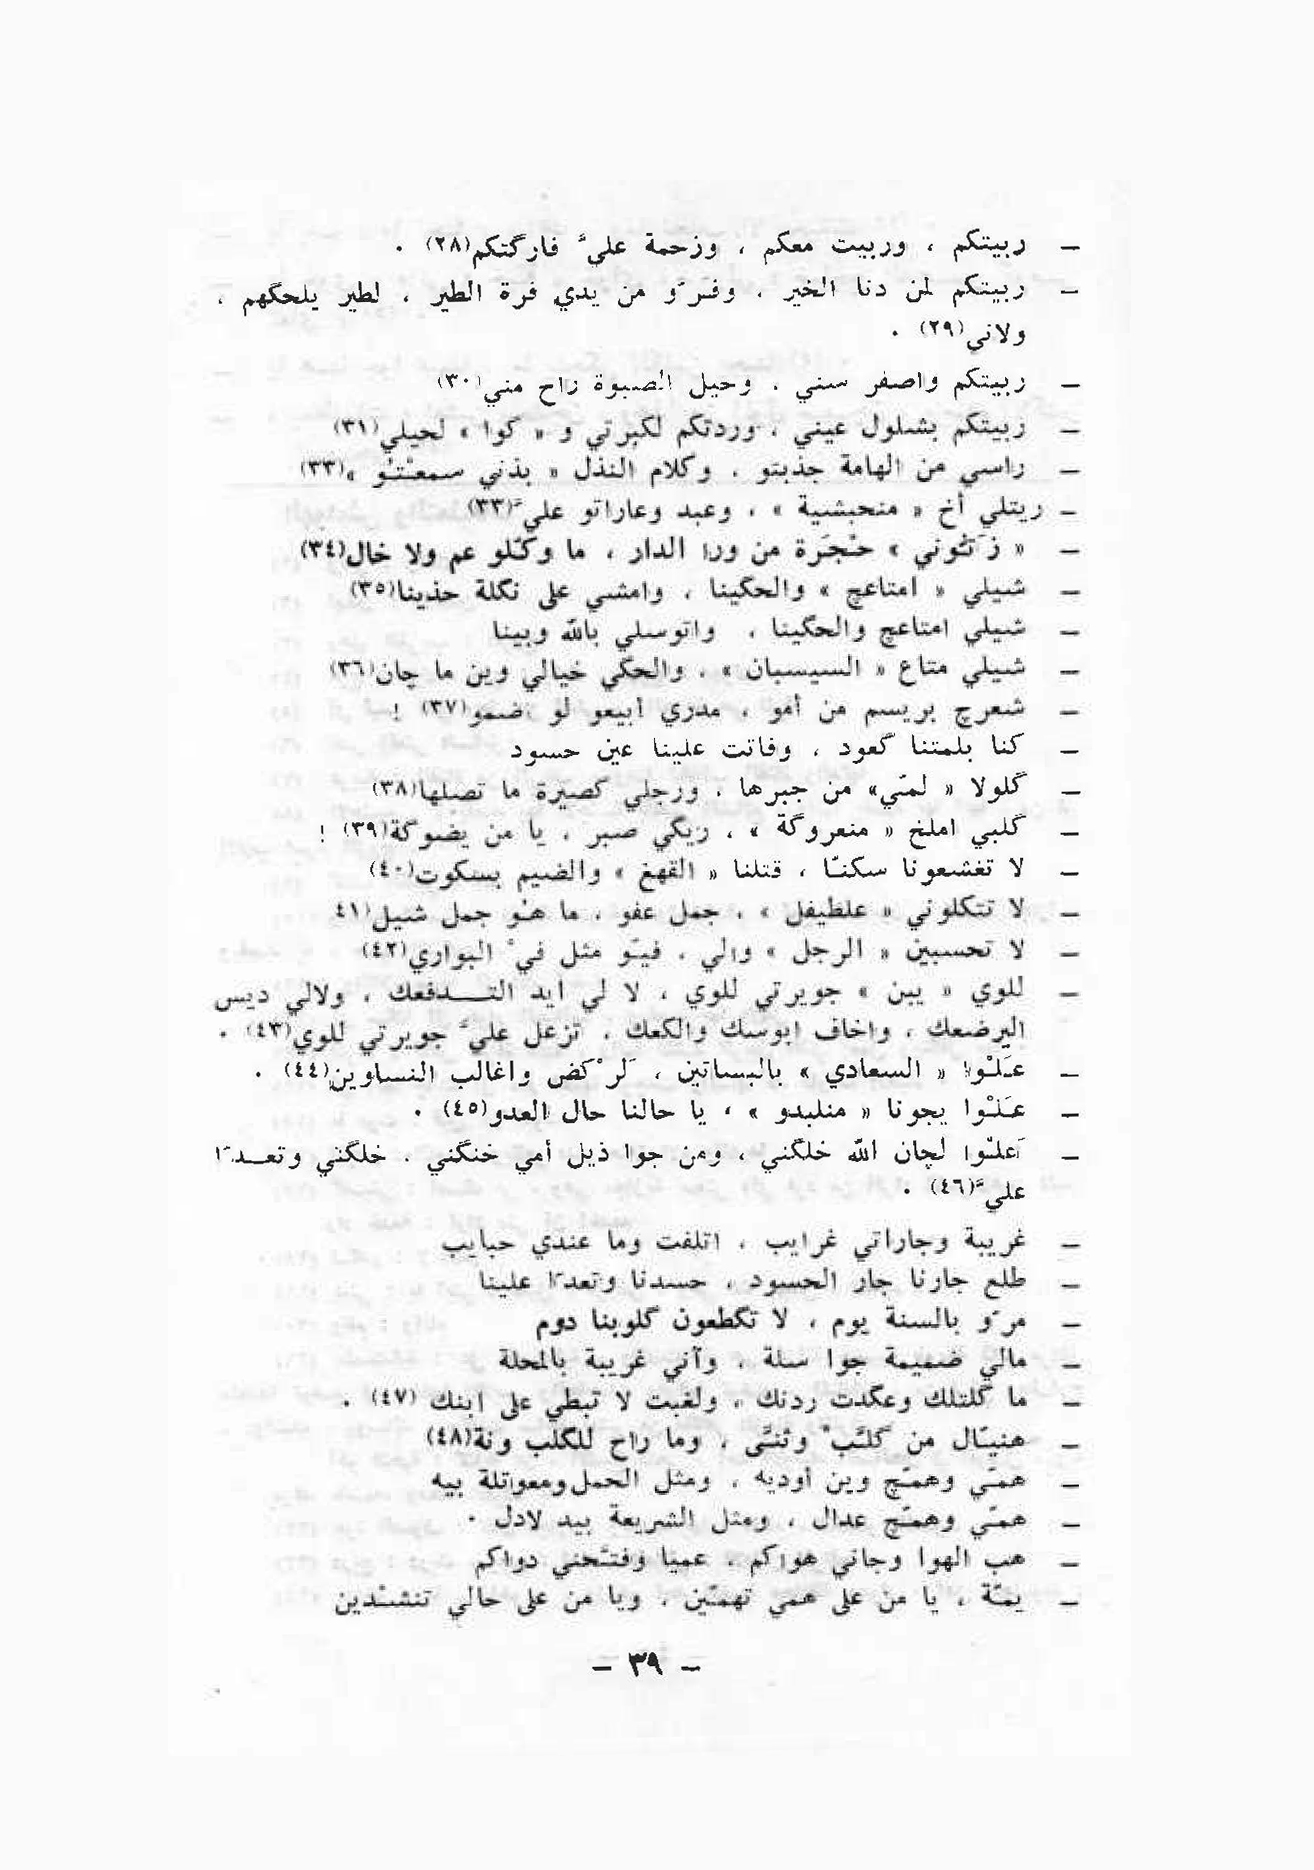 ـ ربيتكم ، وربيت معكم ، وزحمة عليَّ فارگتكم(٢٨) .
ـ ربيتكم لمن دنا الخير ، وفرّو من يدي فرة الطير ، لطير يلحگهم ،
ولاني(٢٩) .
ـ ربيتكم واصفر سني ، وحيل الصبوة راح مني(٣٠)
ـ ربيتكم بشلول عيني ، وردتكم لكبرتي و « كوا » لحيلي(٣١)
ـ راسي من الهامة جذبتو ، وكلام النذل « بذني سمعْتـُو »(٣٣)
ـ ريتلي أخ « منحبشية » ، وعبد وعاراتو عليَّ(٣٣)
ـ « زَتـّوني » حْجَرة من ورا الدار ، ما وكّلو عم ولا خال(٣٤)
ـ شيلي « امتاعچ » والحگينا ، وامشي على نگلة حذينا(٣٥)
ـ شيلي امتاعچ والحگينا ، واتوسلي بالله وبينا
ـ شيلي متاع « السيسبان » ، والحگي خيالي وين ما چان(٣٦)
ـ شعرچ بريسم من أمو ، مدري أبيعو لو اضمو(٣٧) !
ـ كنا بلمتنا گعود ، وفاتت علينا عين حسود
ـ گلولا « لمّي» من جبرها ، ورجلي كصيرة ما تصلها(٣٨)
ـ گلبي املخ « منعروگة » ، ريگي صبر ، يا من يضوگة(٣٩) !
ـ لا تغشعونا سكنّا ، قتلنا « القهغ » والضيم بسكوت(٤٠)
ـ لا تتكلوني « علطيفل » ، جمل عفو ، ما هْو جمل شيل(٤١
ـ لا تحسبين « الرجل » والي ، فيّو مثل فيْ البواري(٤٢)
ـ للوي « يبين » جويرتي للوي ، لا لي ايد التـــدفعك ، ولالي ديس
اليرضعك ، واخاف ابوسك والكعك ، تزعل عليَّ جويرتي للوي(٤٣) .
ـ عَلـْوا « السعادي » بالبساتين ، لَرْكض واغالب النساوين(٤٤) .
ـ عَلـْوا يجونا « منلبدو » ، يا حالنا حال العدو(٤٥) .
ـ أعلـْوا لچان الله خلگني ، ومن جوا ذيل أمي خنگني ، خلگني وتعـدّا
عليَّ(٤٦) .
ـ غريبة وجاراتي غرايب ، اتلفت وما عندي حبايب
ـ طلع جارنا جار الحسود ، حسدنا وتعدّا علينا
ـ مرّو بالسنة يوم ، لا تگطعون گلوبنا دوم
ـ مالي ضميمة جوا سلة ، وآني غريبة بالمحلة
ـ ما گلتلك وعگدت ردنك ، ولغبت لا تبطي على ابنك (٤٧) .
ـ هنيّال من گلـَّب وثنـَّى ، وما راح للگلب ونة(٤٨)
ـ همّي وهمّچ وين اوديه ، ومثل الحمل ومعواتلة بيه
ـ همّي وهمّچ عدال ، ومثل الشريعة بيد لادل .
ـ هب الهوا وجاني هواكم ، عميا وفتـَّحني دواكم
ـ يمّة ، يا من على همي تهمّين ، ويا من على حالي تنشـْدين
ـ ٣٩ ـ